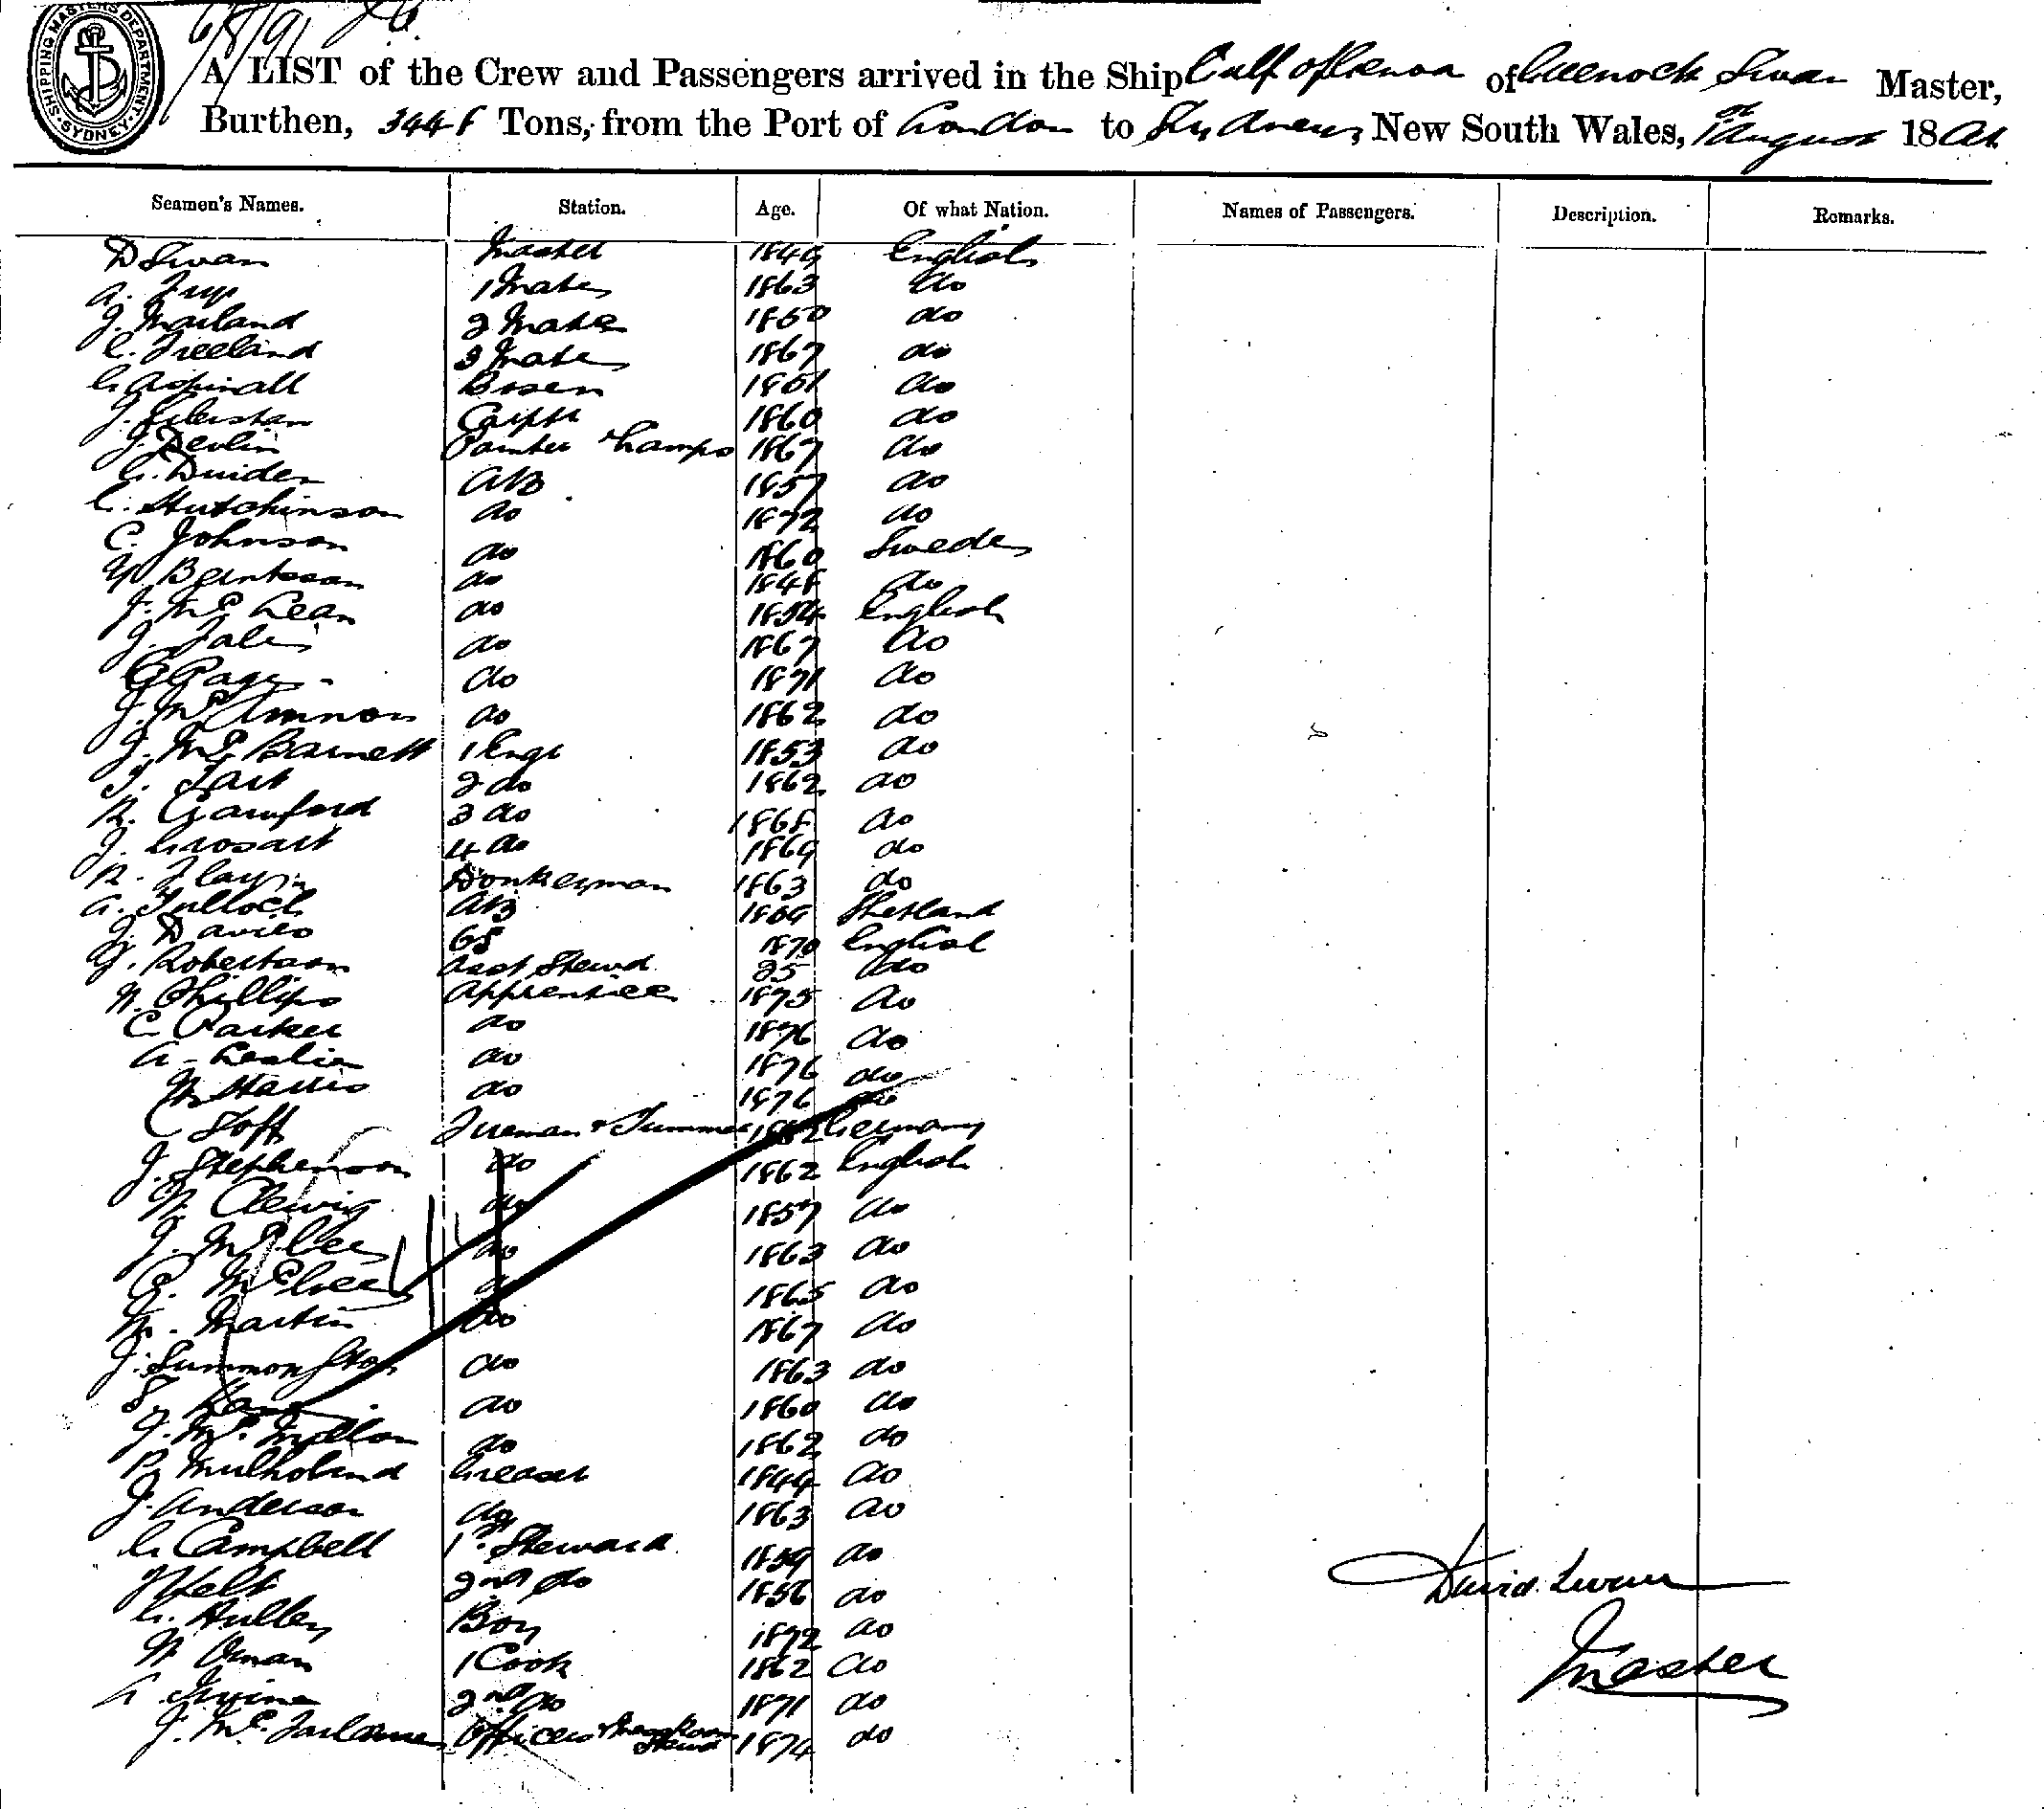 SHIPPING MASTERS DEPARTMENT · SYDNEY ·
6/8/91
A LIST of the Crew and Passengers arrived in the Ship Gulf of Genoa of Greenock Swan Master,
Burthen, 3448 Tons, from the Port of London to Sydney, New South Wales, August 1891
Seamen's Names. Station. Age. Of what Nation. Names of Passengers. Description. Remarks.
D Swan Master 1849 English
A. 1 Mate 1863 do
J. Marland 2 Mate 1860 do
C. Freeland 3 Mate 1867 do
G. Aspinall Bosen 1861 do
J. Carptr 1860 do
J. Devlin Painter & Lamps 1867 do
G. AB 1857 do
C. Hutchinson do 1872 do
C. Johnson do 1860 Sweden
Berntsson do 1848 do
J. McLean do 1854 English
J. do 1867 do
G Page do 1871 do
J. McAmmon do 1862 do
J. McBarnett 1 Engr 1853 do
J. 2 do 1862 do
R. Crawford 3 do 1868 do
J. Grosart 4 do 1869 do
R. Donkeyman 1863 do
A. Tulloch AB 1869 Shetland
J. Davies 1870 English
J. Robertson Asst Stewd 25 do
W. Phillips Apprentice 1875 do
C. Parker do 1876 do
A. Leslie do 1876 do
W. Harris do 1876 do
C Toff Fireman & Trimmer Germany
J. Stephenson do 1862 English
W. Clewig do 1857 do
J. do 1863 do
do 1865 do
W. Martin do 1867 do
J. do 1863 do
do 1860 do
J. do 1862 do
P. Mulholland Greaser 1844 do
J. Anderson do 1863 do
G. Campbell 1st Steward 1859 do
Kelt 2nd do 1856 do
G. Hulley Boy 1872 do
W Oman 1 Cook 1862 do
A Irvine 2nd do 1871 do
J. McFarlane Officers & Messroom Stewd 1874 do
David Swan
Master